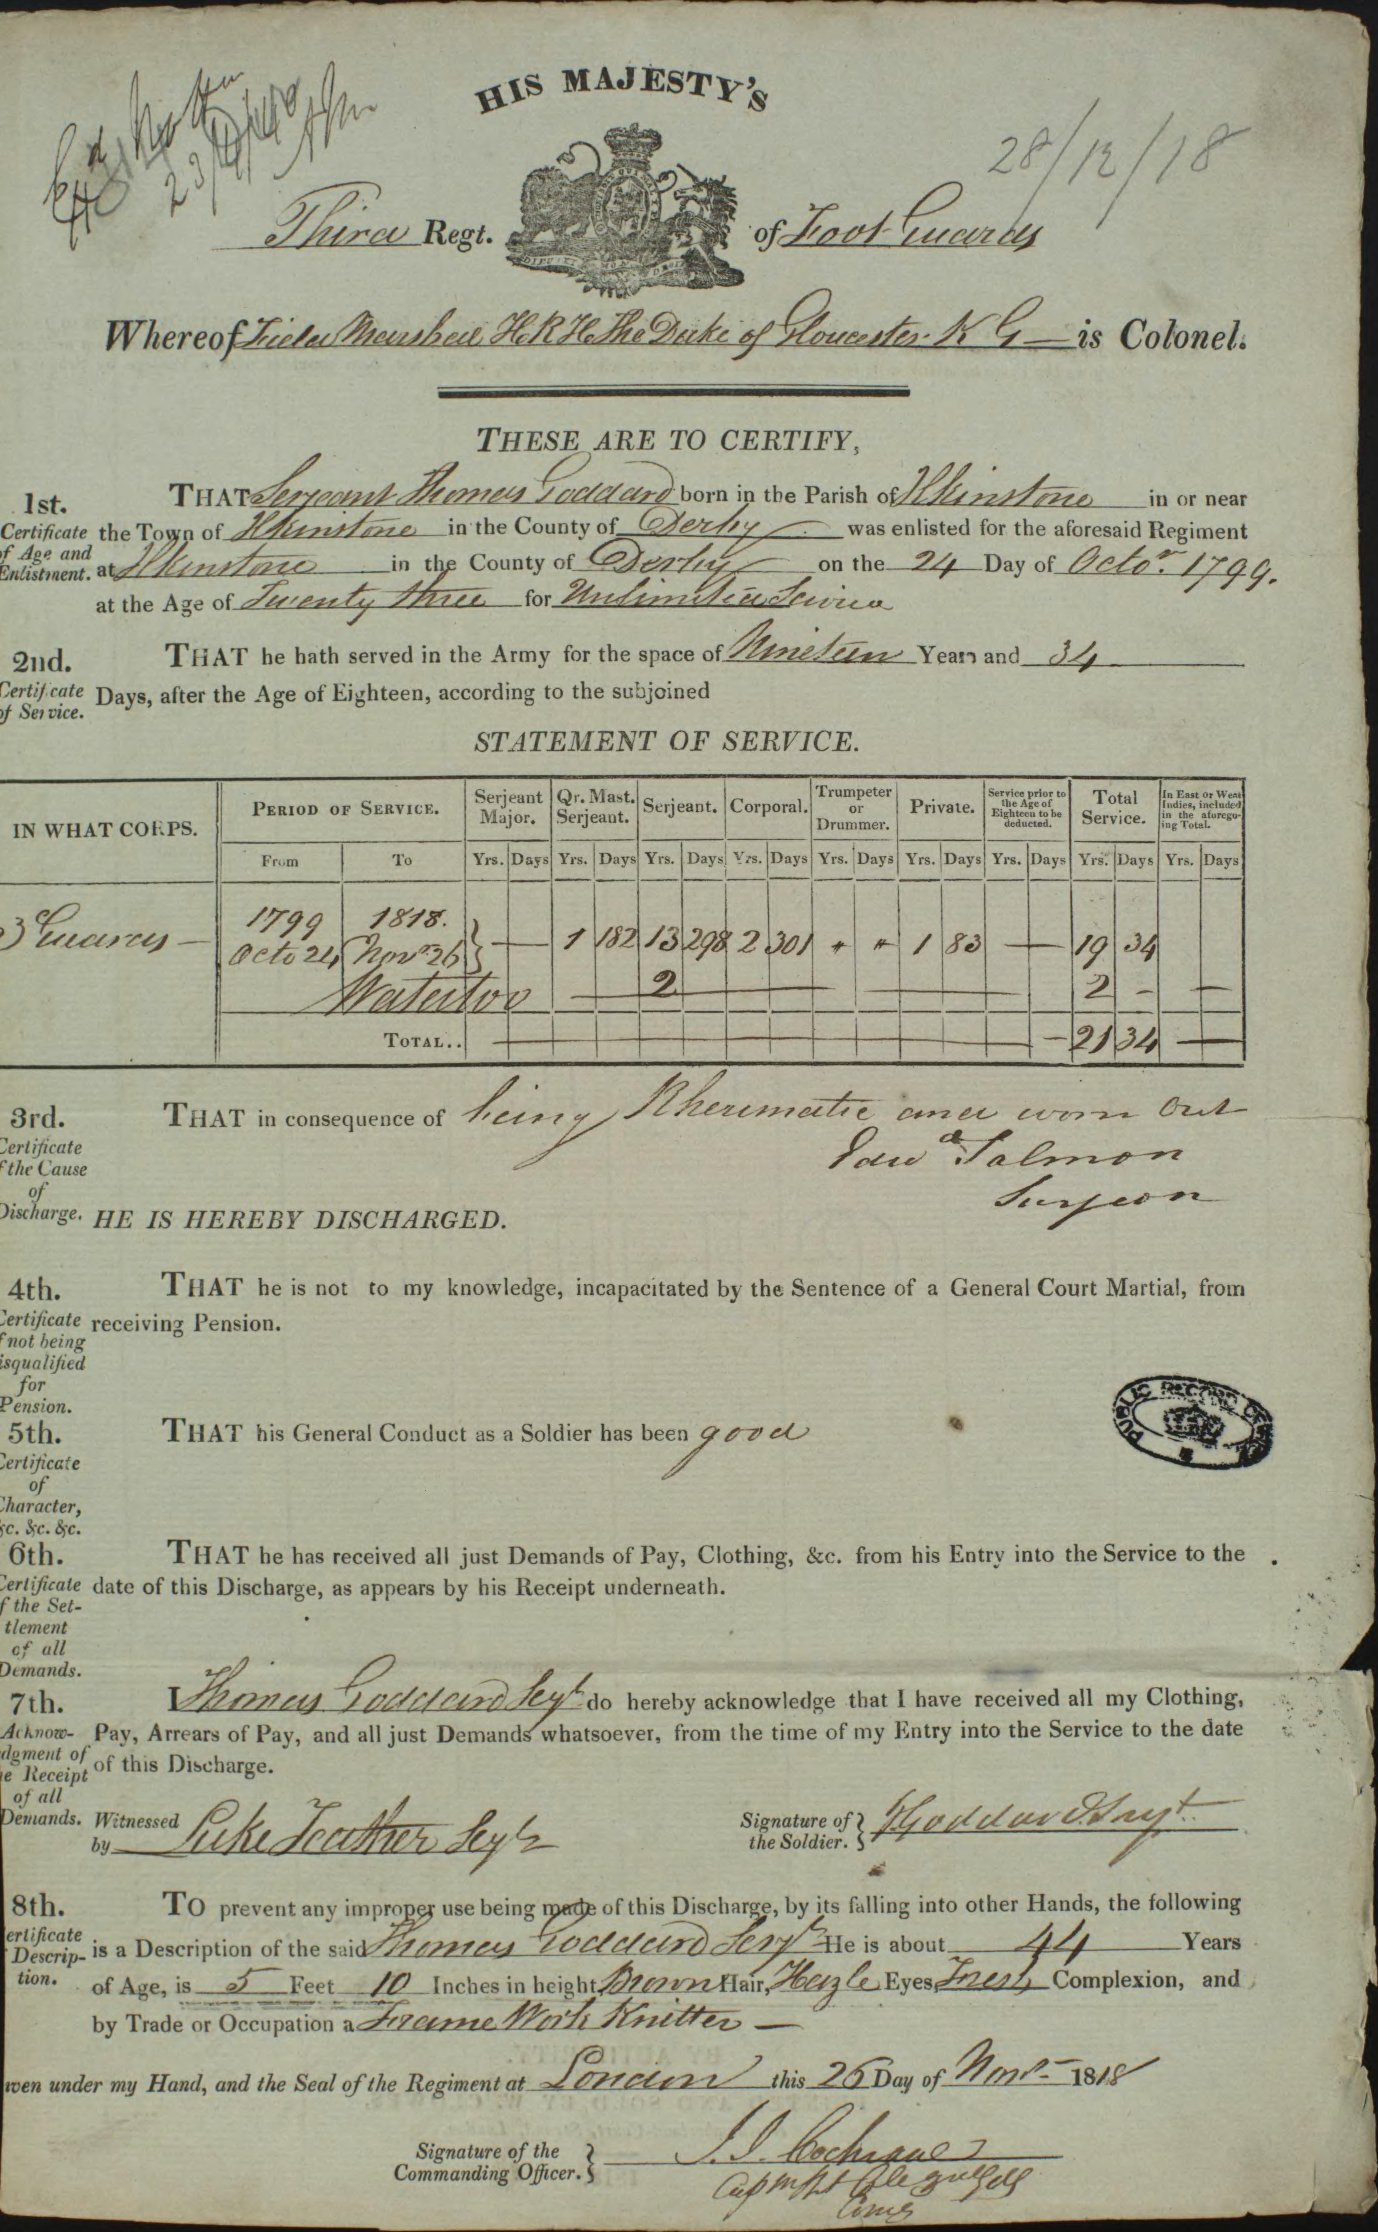 HIS MAJESTY'S
28/12/18
Third Regt. of Foot Guards
Whereof Field Marshal H.R.H. The Duke of Gloucester K G is Colonel.
THESE ARE TO CERTIFY,
1st. Certificate of Age and Enlistment.
THAT Serjeant Thomas Goddard born in the Parish of Ilkinstone in or near
the Town of Ilkinstone in the County of Derby was enlisted for the aforesaid Regiment
at Ilkinstone in the County of Derby on the 24 Day of Octor. 1799.
at the Age of Twenty three for Unlimited Service
2nd. Certificate of Service.
THAT he hath served in the Army for the space of Nineteen Years and 34
Days, after the Age of Eighteen, according to the subjoined
STATEMENT OF SERVICE.
IN WHAT CORPS. PERIOD OF SERVICE. Serjeant Major. Qr. Mast. Serjeant. Serjeant. Corporal. Trumpeter or Drummer. Private. Service prior to the Age of Eighteen to be deducted. Total Service. In East or West Indies, included in the aforegoing Total.
From To Yrs. Days Yrs. Days Yrs. Days Yrs. Days Yrs. Days Yrs. Days Yrs. Days Yrs. Days Yrs. Days
1799 1818.
3 Guards — Octo 24 Novr 26 } — 1 182 13 298 2 301 " " 1 83 — 19 34
Waterloo 2 2 - —
TOTAL.. 21 34 —
3rd. Certificate of the Cause of Discharge.
THAT in consequence of being Rheumatic and worn out
Edwd Salmon
Surgeon
HE IS HEREBY DISCHARGED.
4th. Certificate of not being disqualified for Pension.
THAT he is not to my knowledge, incapacitated by the Sentence of a General Court Martial, from
receiving Pension.
5th. Certificate of Character, &c. &c. &c.
THAT his General Conduct as a Soldier has been good
PUBLIC RECORD OFFICE
6th. Certificate of the Settlement of all Demands.
THAT he has received all just Demands of Pay, Clothing, &c. from his Entry into the Service to the
date of this Discharge, as appears by his Receipt underneath.
7th. Acknowledgment of the Receipt of all Demands.
I Thomas Goddard Serjt do hereby acknowledge that I have received all my Clothing,
Pay, Arrears of Pay, and all just Demands whatsoever, from the time of my Entry into the Service to the date
of this Discharge.
Witnessed by Luke Feather Serjt
Signature of the Soldier. } T Goddard Sarjt
8th. Certificate Description.
TO prevent any improper use being made of this Discharge, by its falling into other Hands, the following
is a Description of the said Thomas Goddard Serjt He is about 44 Years
of Age, is 5 Feet 10 Inches in height, Brown Hair, Hazle Eyes, Fresh Complexion, and
by Trade or Occupation a Frame Work Knitter —
Given under my Hand, and the Seal of the Regiment at London this 26 Day of Novr 1818
Signature of the Commanding Officer. } J. J. Cochrane